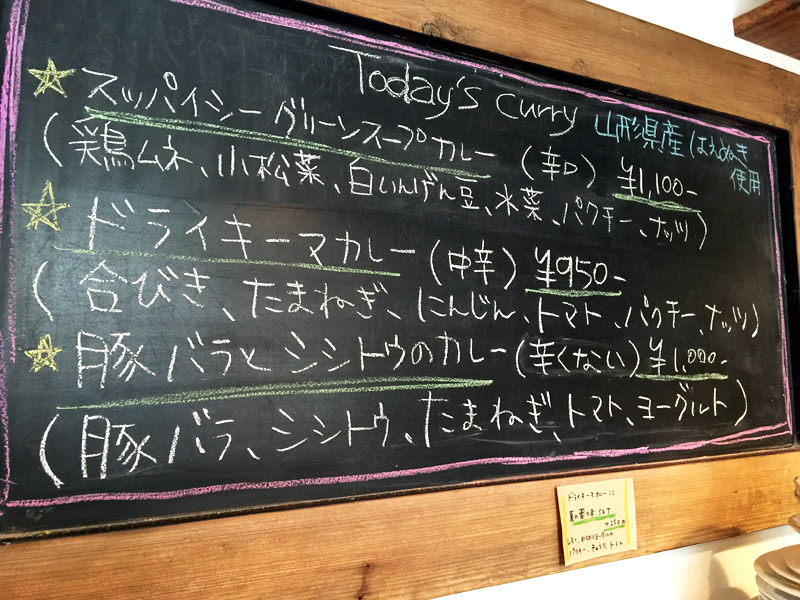 Today's curry
山形県産 はえぬき
使用
スッパイシーグリーンスープカレー (辛口) ¥1,100-
(鶏ムネ、小松菜、白いんげん豆、水菜、パクチー、ナッツ)
ドライキーマカレー (中辛) ¥950-
(合びき、たまねぎ、にんじん、トマト、パクチー、ナッツ)
豚バラとシシトウのカレー (辛くない) ¥1,000-
(豚バラ、シシトウ、たまねぎ、トマト、ヨーグルト)
ドライキーマカレーに
SET
+250円
レモン、水切りヨーグルト
パクチー、きゅうり、トマト